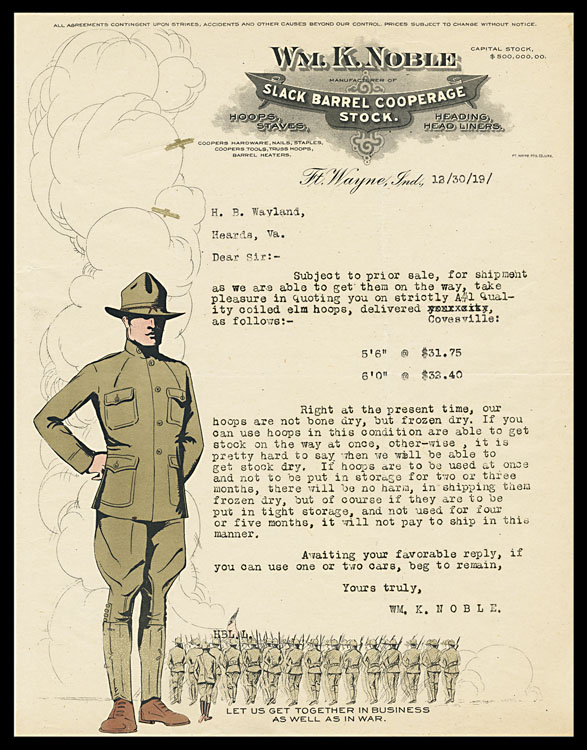 ALL AGREEMENTS CONTINGENT UPON STRIKES, ACCIDENTS AND OTHER CAUSES BEYOND OUR CONTROL. PRICES SUBJECT TO CHANGE WITHOUT NOTICE.
WM. K. NOBLE
CAPITAL STOCK,
$500,000.00.
MANUFACTURER OF
SLACK BARREL COOPERAGE
STOCK.
HOOPS,
STAVES,
HEADING,
HEAD LINERS.
COOPERS HARDWARE, NAILS, STAPLES,
COOPERS TOOLS, TRUSS HOOPS,
BARREL HEATERS.
Ft. Wayne, Ind., 12/30/19/
H. B. Wayland,
Heards, Va.
Dear Sir:-
Subject to prior sale, for shipment
as we are able to get them on the way, take
pleasure in quoting you on strictly A#1 Qual-
ity coiled elm hoops, delivered
as follows:- Covesville:
5'6" @ $31.75
6'0" @ $32.40
Right at the present time, our
hoops are not bone dry, but frozen dry. If you
can use hoops in this condition are able to get
stock on the way at once, other-wise , it is
pretty hard to say when we will be able to
get stock dry. If hoops are to be used at once
and not to be put in storage for two or three
months, there will be no harm, in shipping them
frozen dry, but of course if they are to be
put in tight storage, and not used for four
or five months, it will not pay to ship in this
manner.
Awaiting your favorable reply, if
you can use one or two cars, beg to remain,
Yours truly,
WM. K. N O B L E.
HBL.L.
LET US GET TOGETHER IN BUSINESS
AS WELL AS IN WAR.